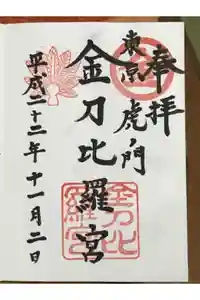 奉拝
東京虎ノ門
金刀比羅宮
平成二十二年十一月二日
金刀比
羅宮